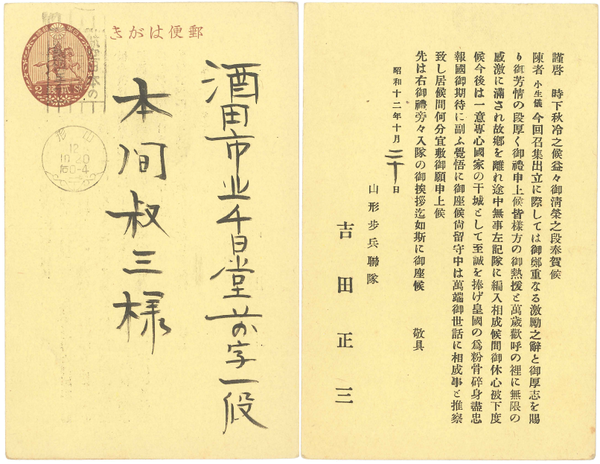 郵便はがき
2 貳錢
12
10.20
后0-4
酒田市北千日堂前字一段
本间叔三様
謹啓 時下秋冷之候益々御清榮之段奉賀候
陳者小生儀今回召集出立に際しては御鄭重なる激勵之辭と御厚志を賜
り御芳情の段厚く御禮申上候皆樣方の御熱援と萬歲歡呼の裡に無限の
感激に滿され故鄕を離れ途中無事左記隊に編入相成候間御休心被下度
候今後は一意專心國家の干城として至誠を捧げ皇國の爲粉骨碎身盡忠
報國御期待に副ふ覺悟に御座候尙留守中は萬端御世話に相成事と推察
致し居候間何分宜敷御願申上候
先は右御禮旁々入隊の御挨拶迄如斯に御座候 敬具
昭和十二年十月二十日
山形步兵聯隊
吉田正三